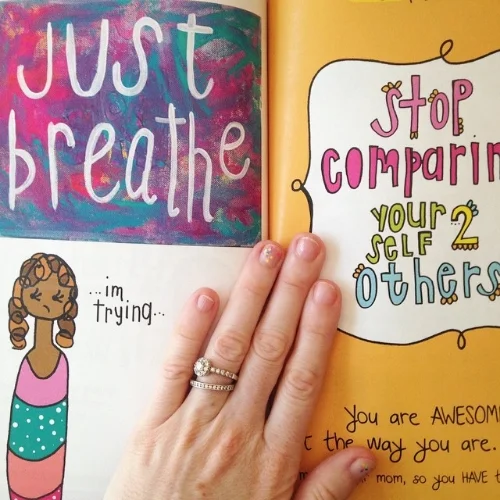 Just
breathe
...im
trying...
Stop
comparin
your
self 2
others
You are AWESOM
t the way you are.
mom, so you HAVE t